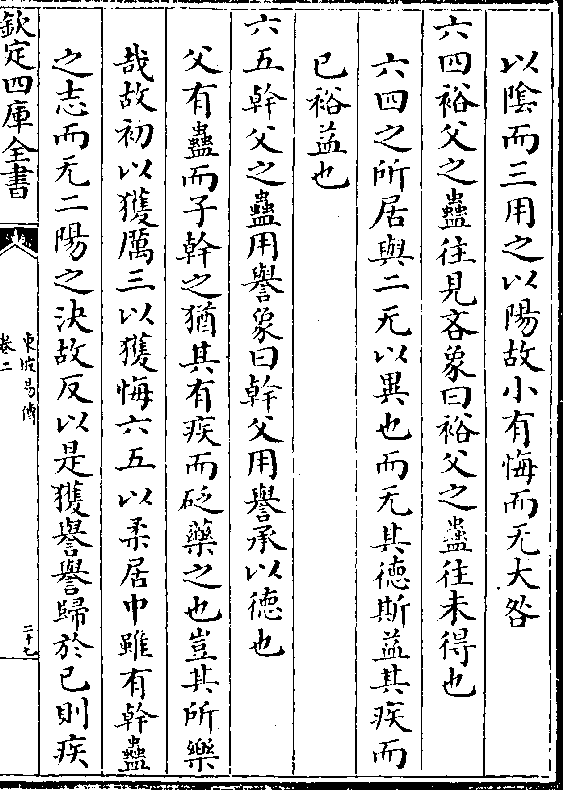 以陰而三用之以陽故小有悔而无大咎
六四裕父之蠱往見吝象曰裕父之蠱往未得也
六四之所居與二无以異也而无其徳斯益其疾而
已裕益也
六五幹父之蠱用譽象曰幹父用譽承以徳也
父有蠱而子幹之猶其有疾而砭藥之也豈其所樂
哉故初以獲厲三以獲悔六五以柔居中雖有幹蠱
之志而无二陽之決故反以是獲譽譽歸於已則疾
欽定四庫全書
東坡易傳
卷二
二十七